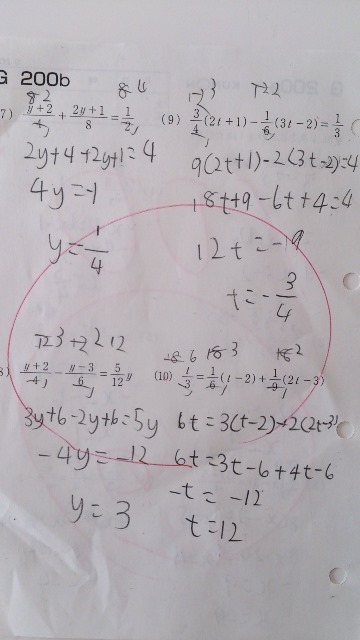 G 200b
7) (y+2)/4 + (2y+1)/8 = 1/2
2y+4+2y+1=4
4y=-1
y=-1/4
(9) 3/4(2t+1)-1/6(3t-2)=1/3
9(2t+1)-2(3t-2)=4
18t+9-6t+4=4
12t=-9
t=-3/4
8) (y+2)/4 - (y-3)/6 = 5/12 y
3y+6-2y+6=5y
-4y=-12
y=3
(10) t/3=1/6(t-2)+1/9(2t-3)
6t=3(t-2)+2(2t-3)
6t=3t-6+4t-6
-t=-12
t=12